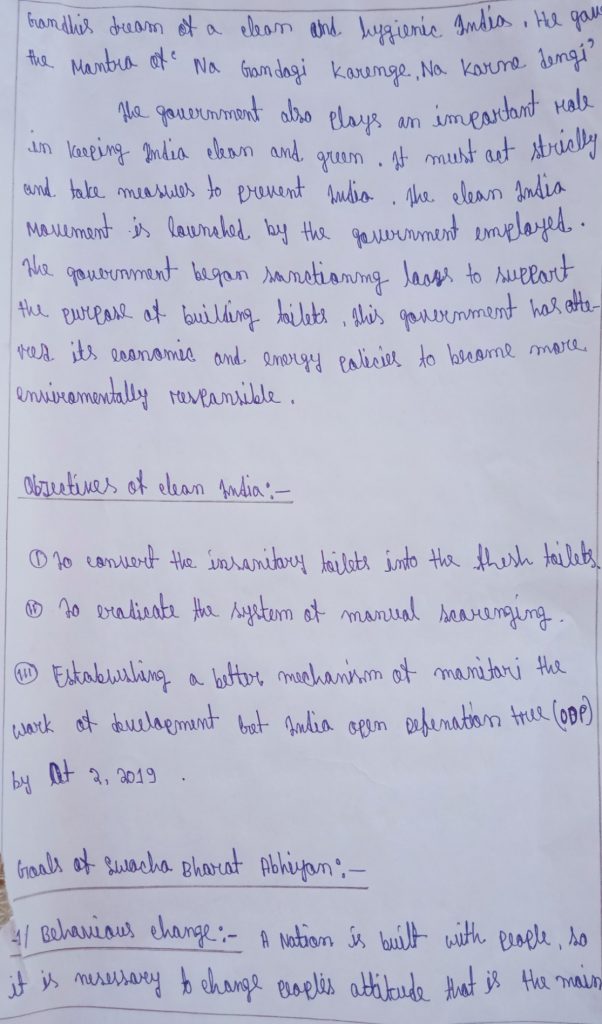 Gandhis dream of a clean and hygienic India. He gave
the Mantra of 'Na Gandagi Karenge, Na Karne dengi'
The government also plays an important role
in keeping India clean and green. It must act strictly
and take measures to prevent India. The clean India
Movement is launched by the government employed.
The government began sanctioning loans to support
the purpose of building toilets, this government has alte-
red its economic and energy policies to become more
enviromentally responsible.
Objectives of clean India:-
(i) To convert the insanitary toilets into the flush toilets.
(ii) To eradicate the system of manual scavenging.
(iii) Establishing a better mechanism of manitori the
work of development but India open Defenation true (ODP)
by Oct 2, 2019.
Goals of Swacha Bharat Abhiyan:-
1/ Behavious change:- A Nation is built with people, so
it is nesessary to change peoples attitude that is the main